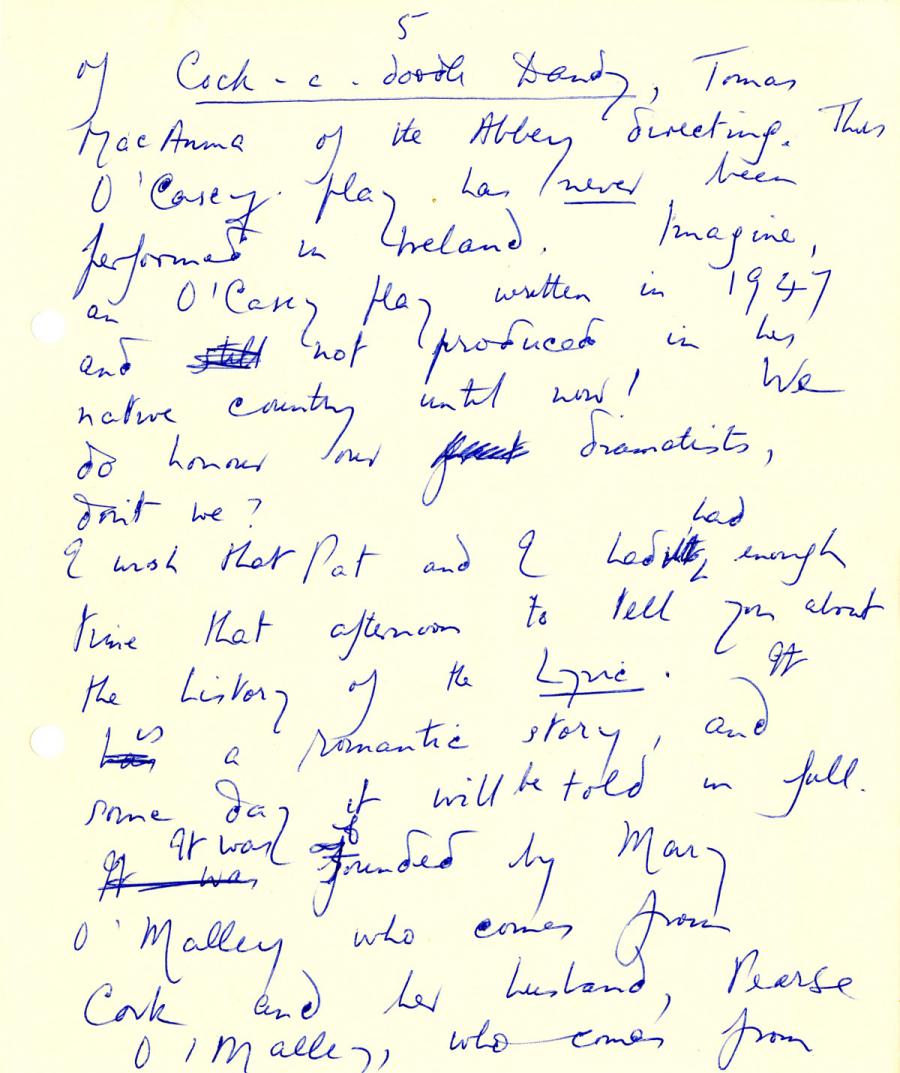 5
of Cock-a-doodle Dandy, Tomas
MacAnna of the Abbey directing. This
O'Casey play has never been
performed in Ireland. Imagine,
an O'Casey play written in 1947
and still not produced in his
native country until now! We
do honour our dramatists,
don't we?
had
I wish that Pat and I had enough
time that afternoon to tell you about
the history of the Lyric. It
is
has a romantic story, and
some day it will be told in full.
It was
It was founded by Mary
O'Malley who comes from
Cork and her husband, Pearse
O'Malley, who comes from